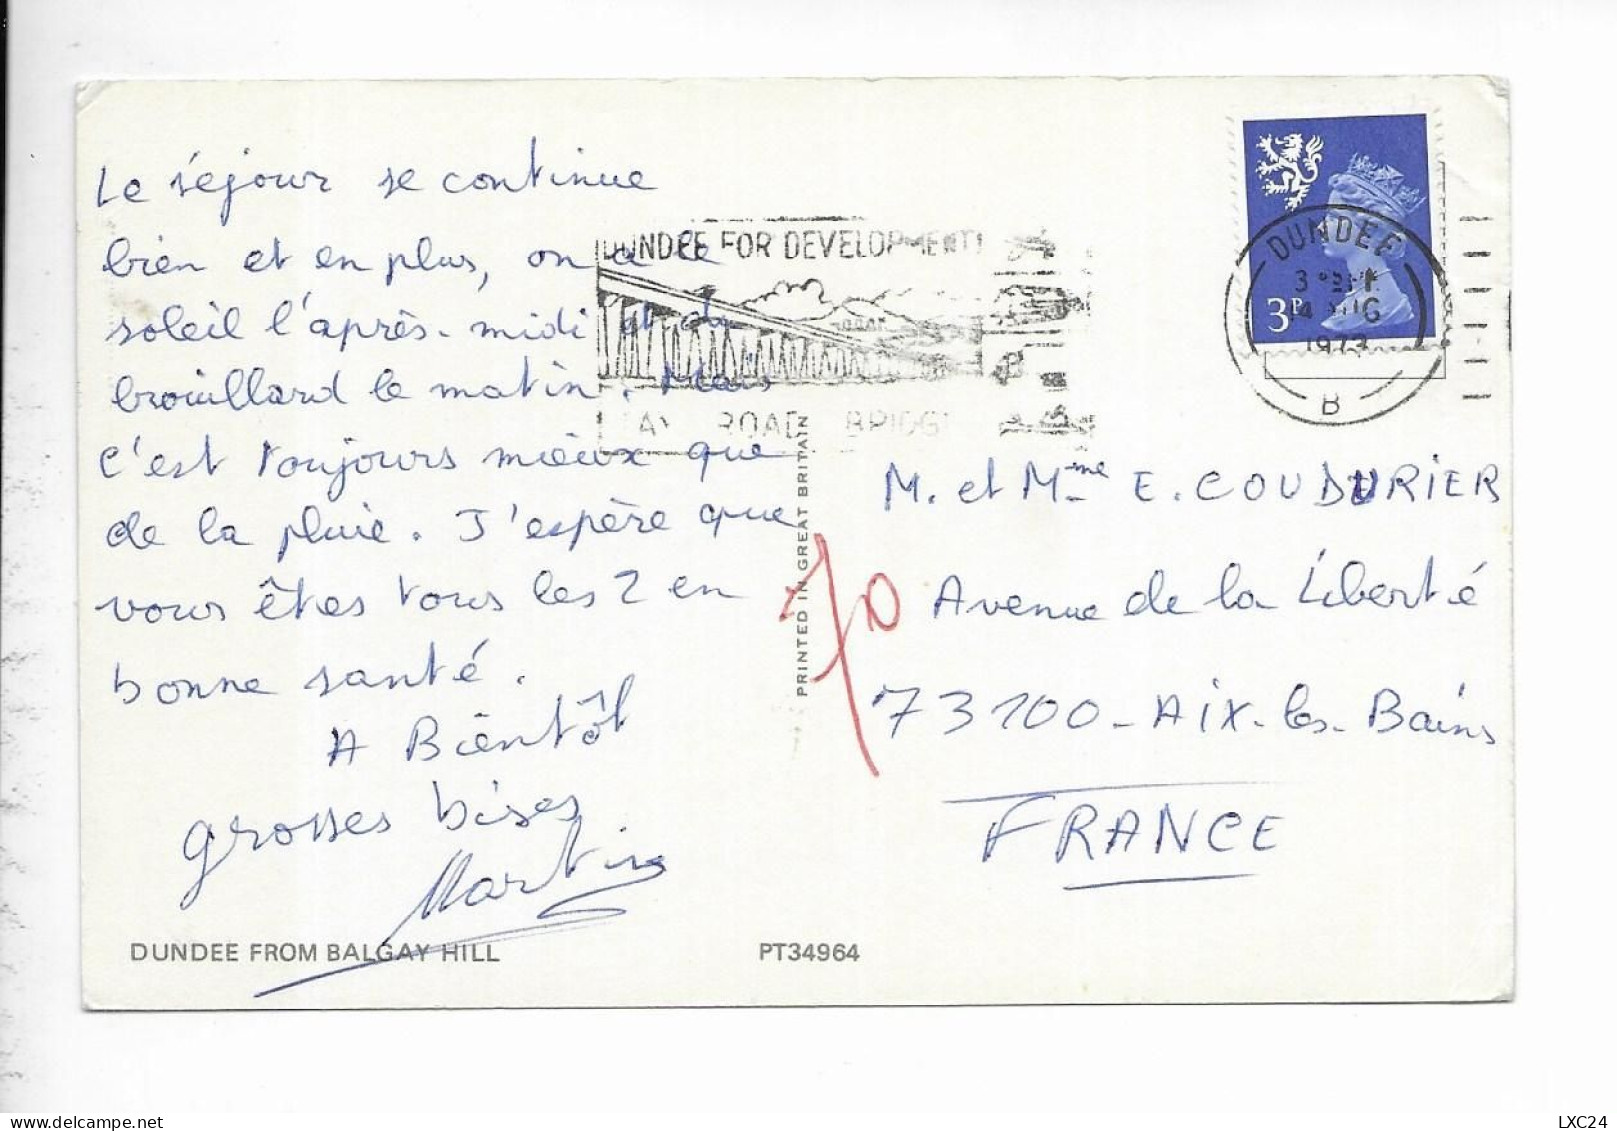 Le séjour se continue
bien et en plus, on a le
soleil l'après-midi et du
brouillard le matin. Mais
c'est toujours mieux que
de la pluie. J'espère que
vous êtes tous les 2 en
bonne santé.
A Bientôt
grosses bises
Martine
DUNDEE FROM BALGAY HILL
PT34964
DUNDEE FOR DEVELOPMENT
TAY ROAD BRIDGE
PRINTED IN GREAT BRITAIN
3P
DUNDEE
14 AUG
1973
B
70
M. et Mme E. COUDURIER
Avenue de la Liberté
73100 - Aix-les-Bains
FRANCE
LXC24